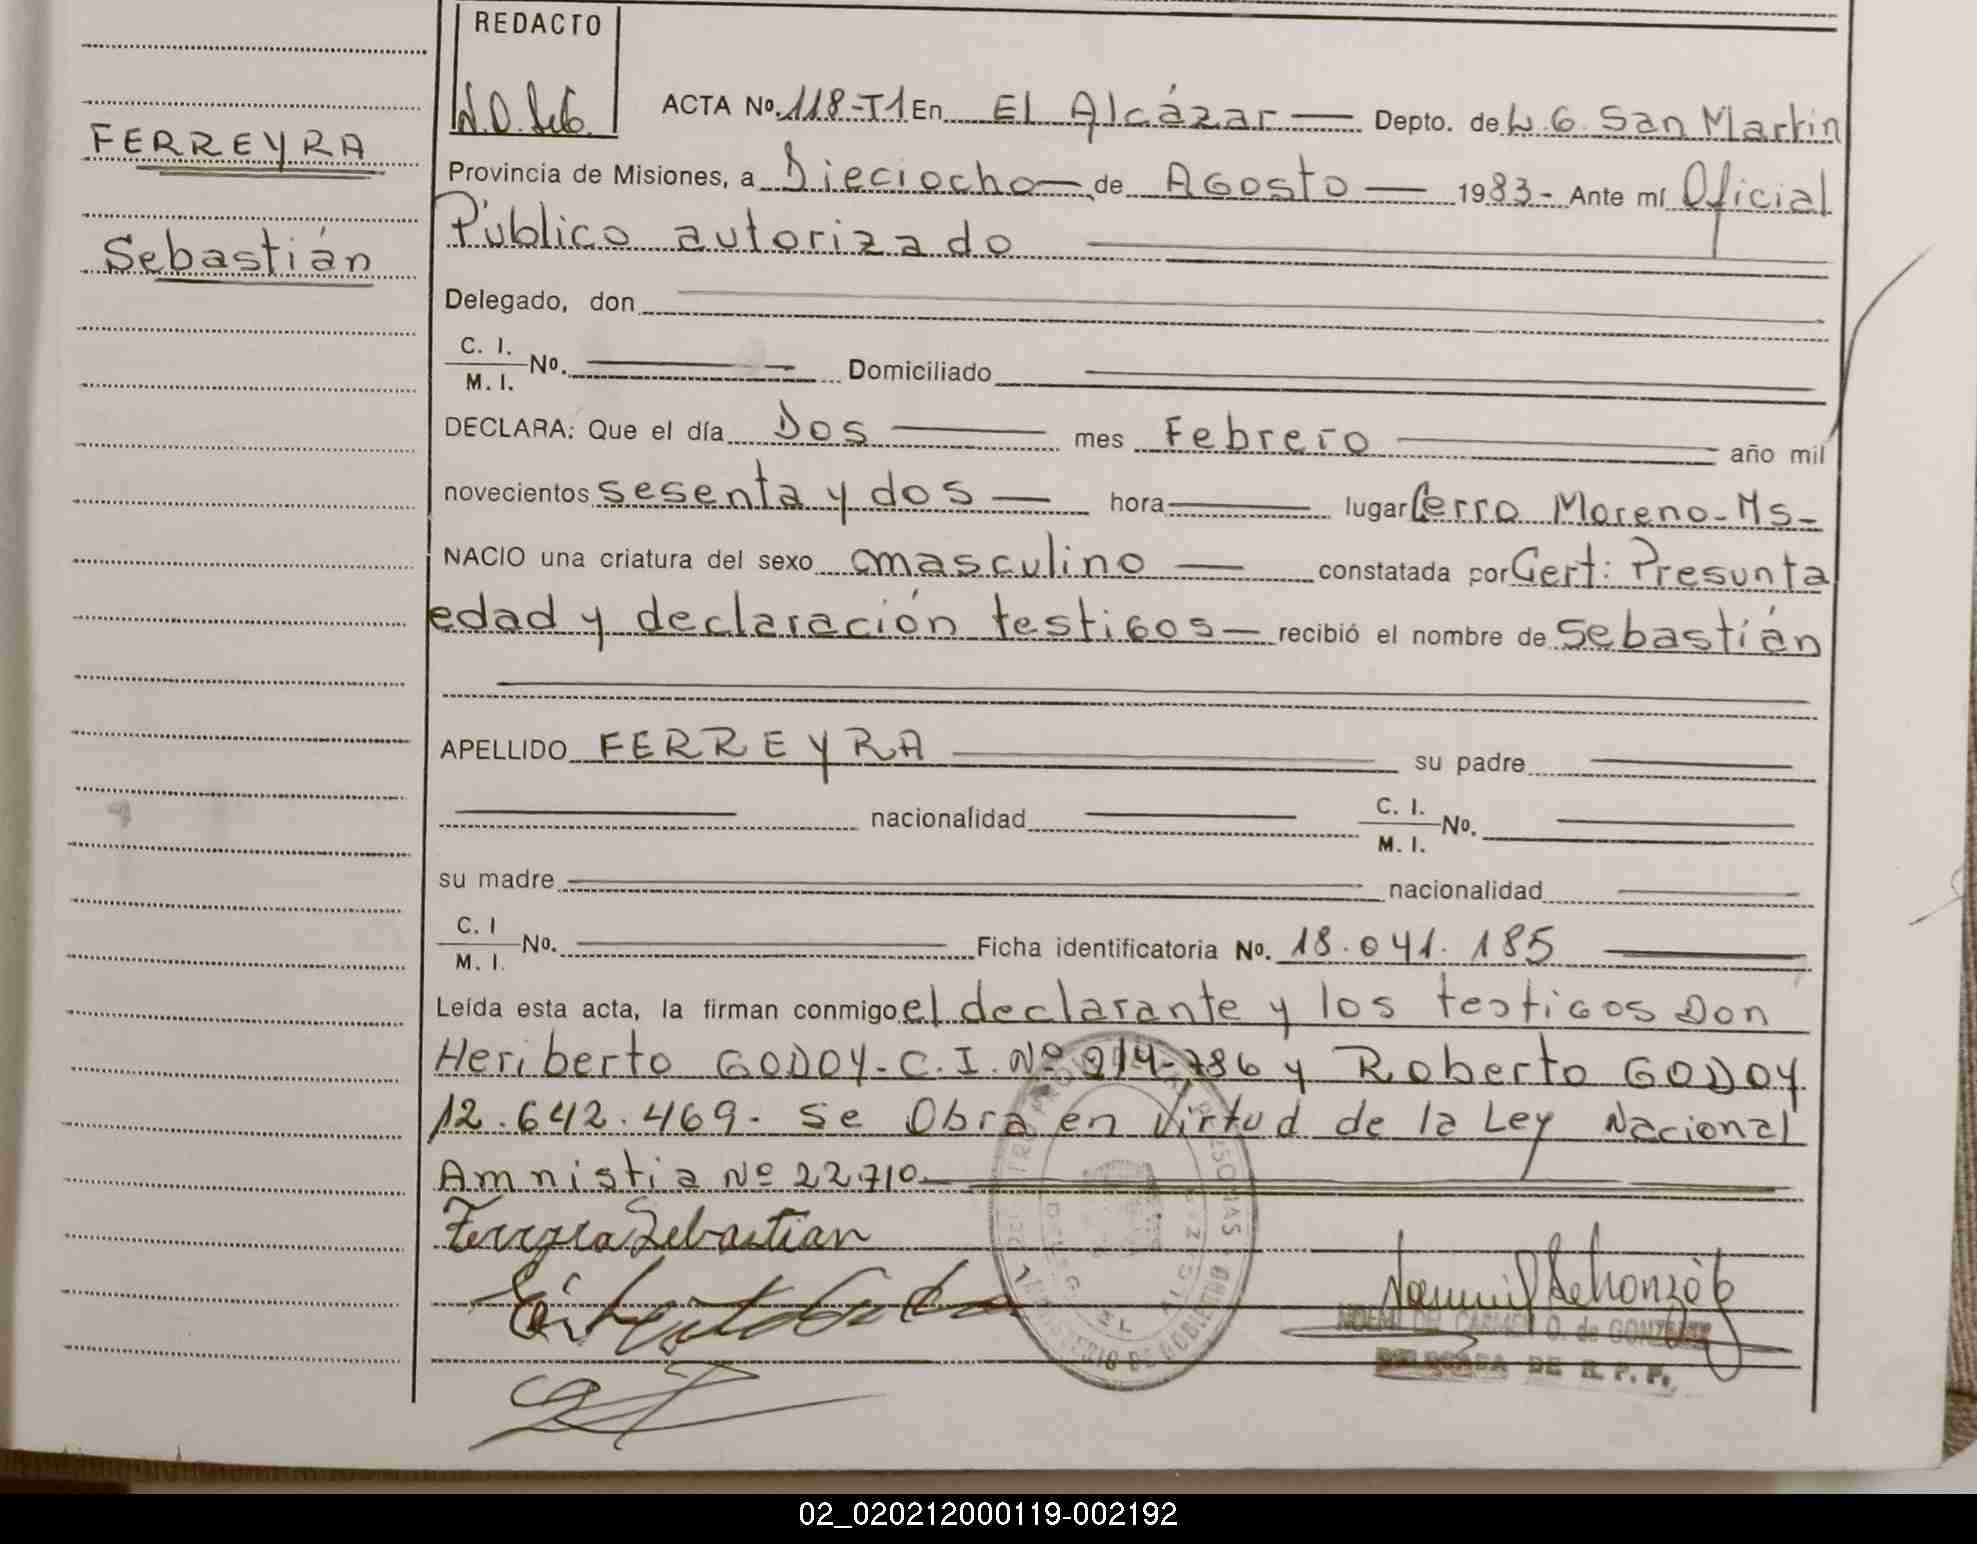 REDACTO
FERREYRA
Sebastián
ACTA Nº. 118-T1 En El Alcázar Depto. de L. G. San Martin
Provincia de Misiones, a Dieciocho de Agosto 1983- Ante mí Oficial
Público autorizado
Delegado, don
C. I. / M. I. Nº. Domiciliado
DECLARA: Que el día Dos mes Febrero año mil
novecientos sesenta y dos hora lugar Cerro Moreno-Ms-
NACIO una criatura del sexo masculino constatada por Cert: Presunta
edad y declaración testigos recibió el nombre de Sebastián
APELLIDO FERREYRA su padre
nacionalidad C. I. / M. I. Nº.
su madre nacionalidad
C. I / M. I. Nº. Ficha identificatoria Nº. 18.041.185
Leída esta acta, la firman conmigo el declarante y los testigos Don
Heriberto GODOY-C.I. Nº 914-786 y Roberto GODOY
12.642.469- Se Obra en Virtud de la Ley Nacional
Amnistia Nº 22.710
Ferreyra Sebastian
NOEMI DEL CARMEN O. de GONZALEZ
DELEGADA DE R. P. P.
MINISTERIO DE GOBIERNO
02_020212000119-002192